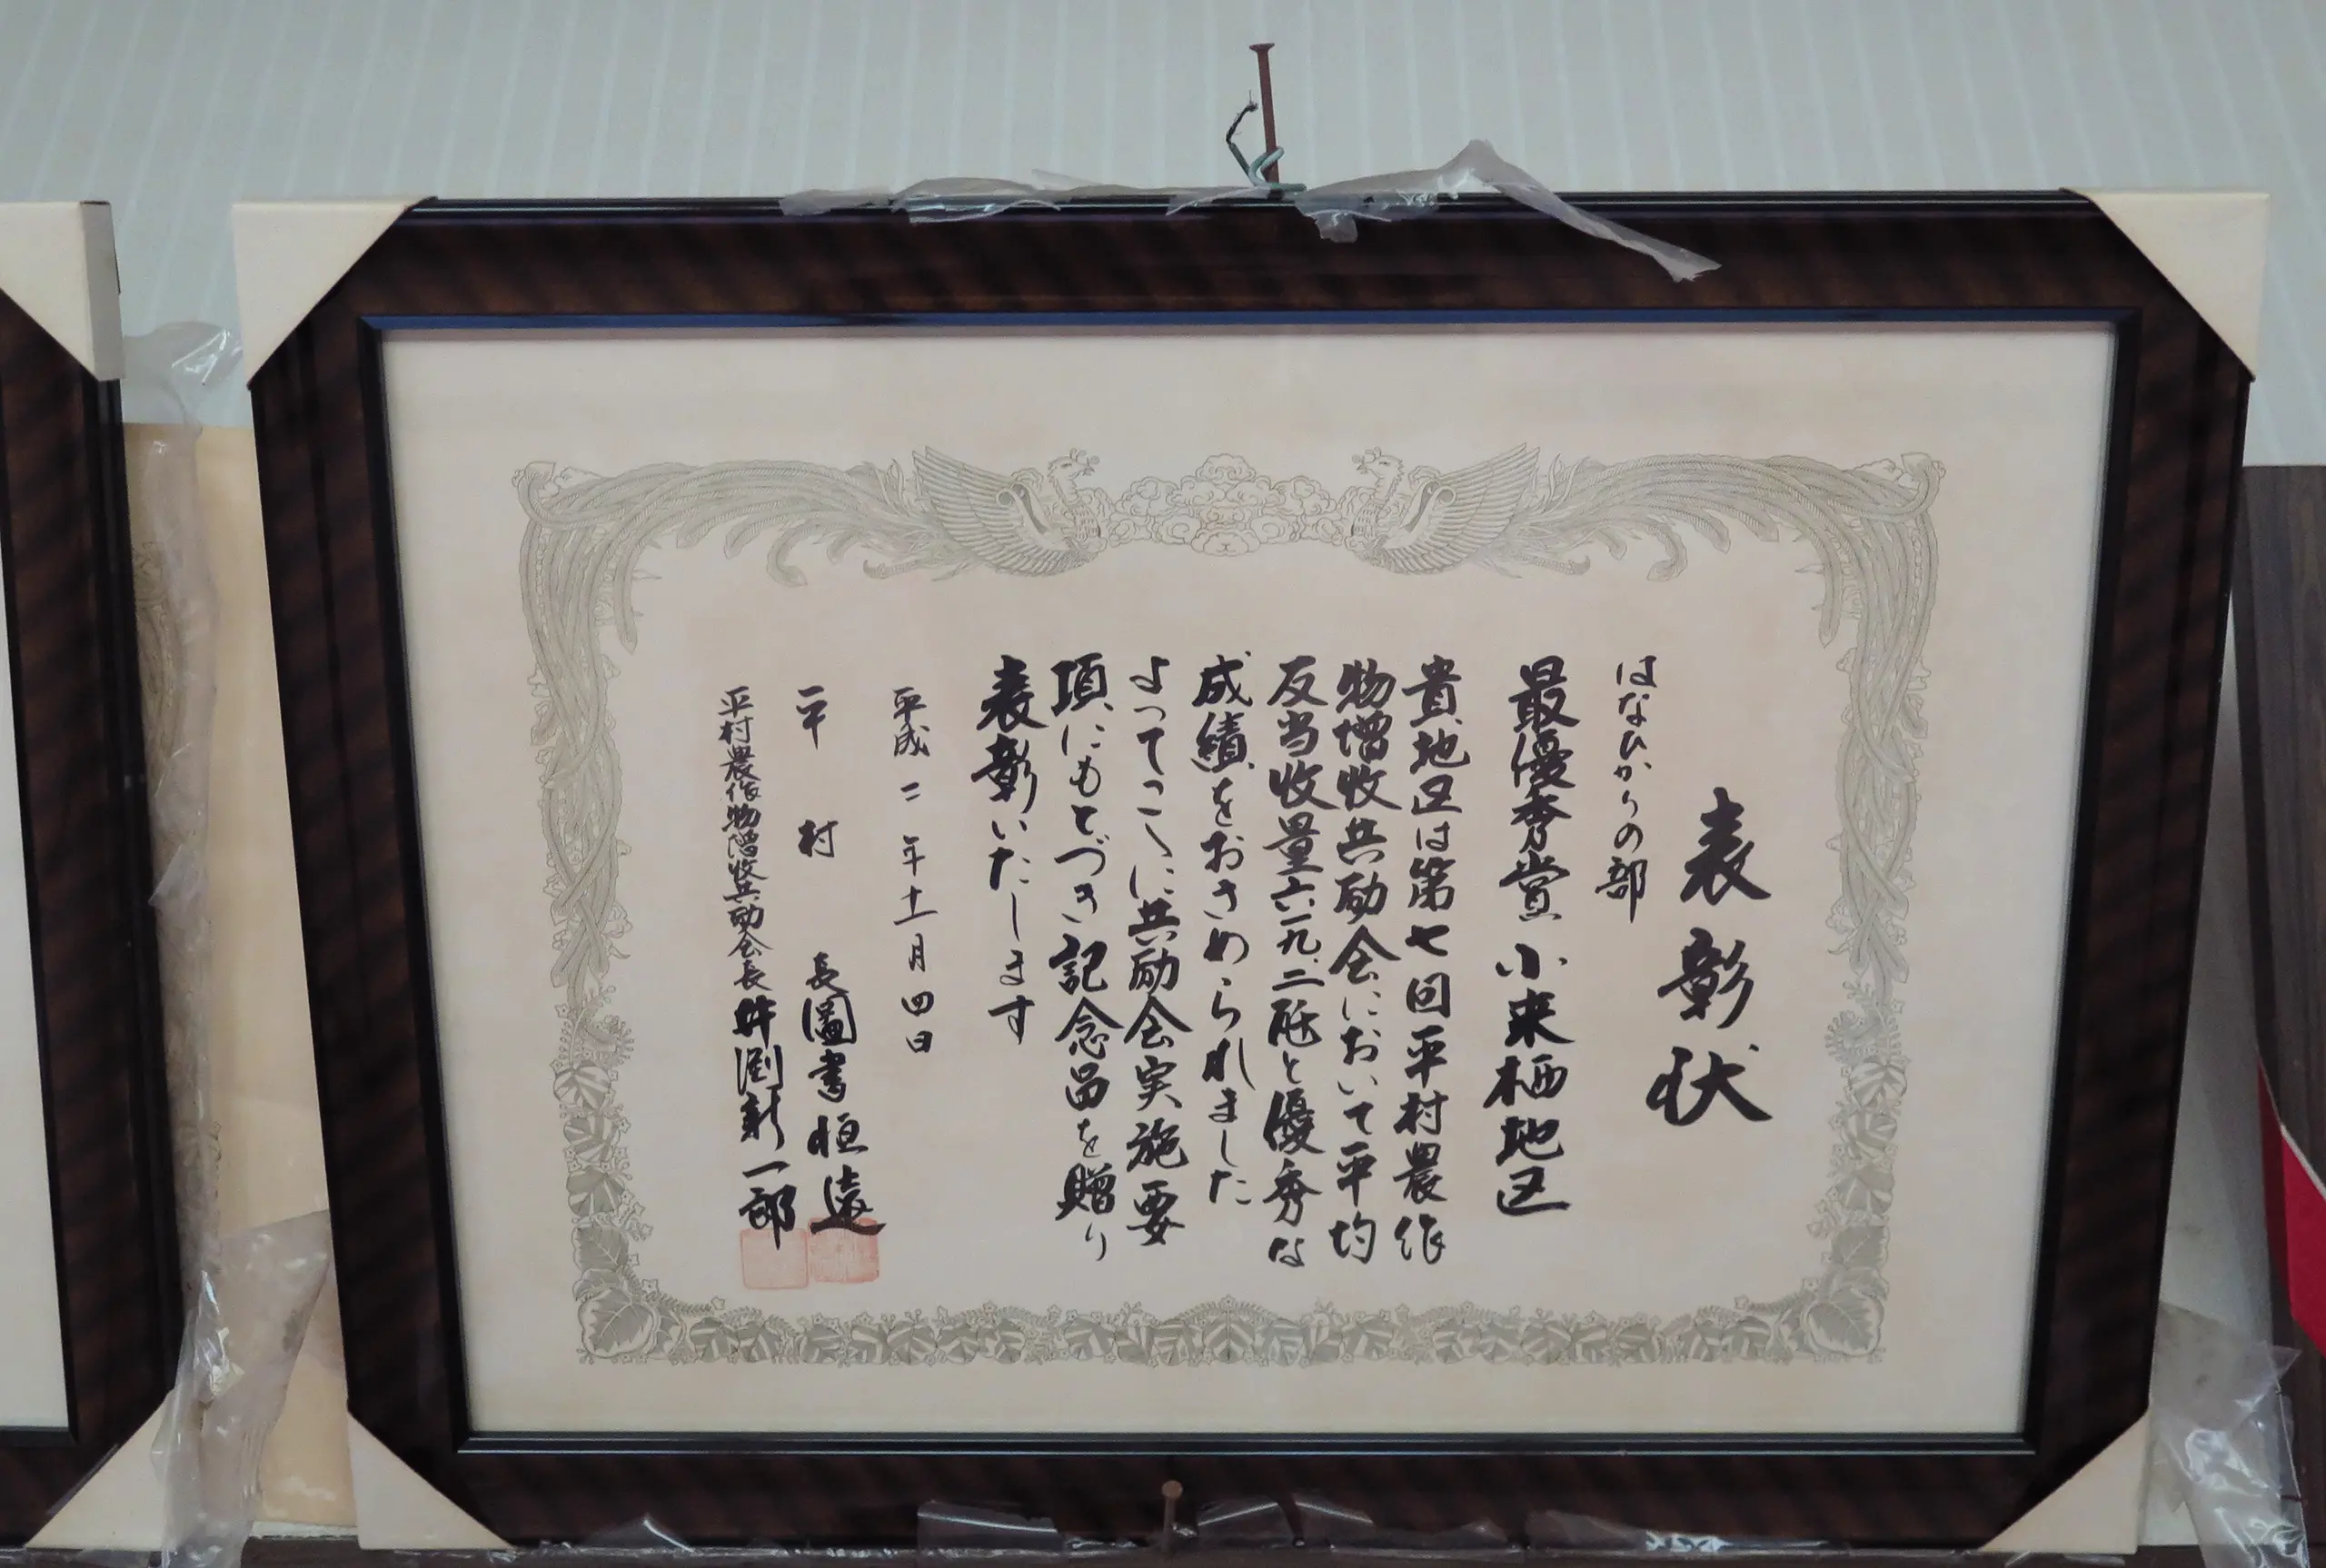 表彰状
はなひかりの部
最優秀賞 小来栖地区
貴地区は第七回平村農作
物増収共励会において平均
反当収量六一九.二瓩と優秀な
成績をおさめられました
よってこゝに共励会実施要
項にもとづき記念品を贈り
表彰いたします
平成二年十一月四日
平村長 圖書恒遠
平村農作物増収共励会長 井渕新一郎